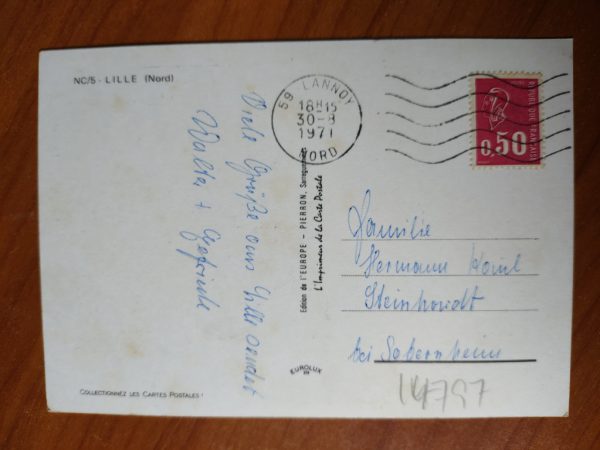 NC/5 - LILLE (Nord)
Viele Grüße aus Lille sendet
Walter +
COLLECTIONNEZ LES CARTES POSTALES !
Edition de l'EUROPE - PIERRON, Sarreguemines
L'Imprimeur de la Carte Postale
EUROLUX
59 LANNOY
18H15
30-8
1971
NORD
REPUBLIQUE FRANCAISE
0,50
Familie
Hermann
Steinhardt
bei Sobernheim
14797